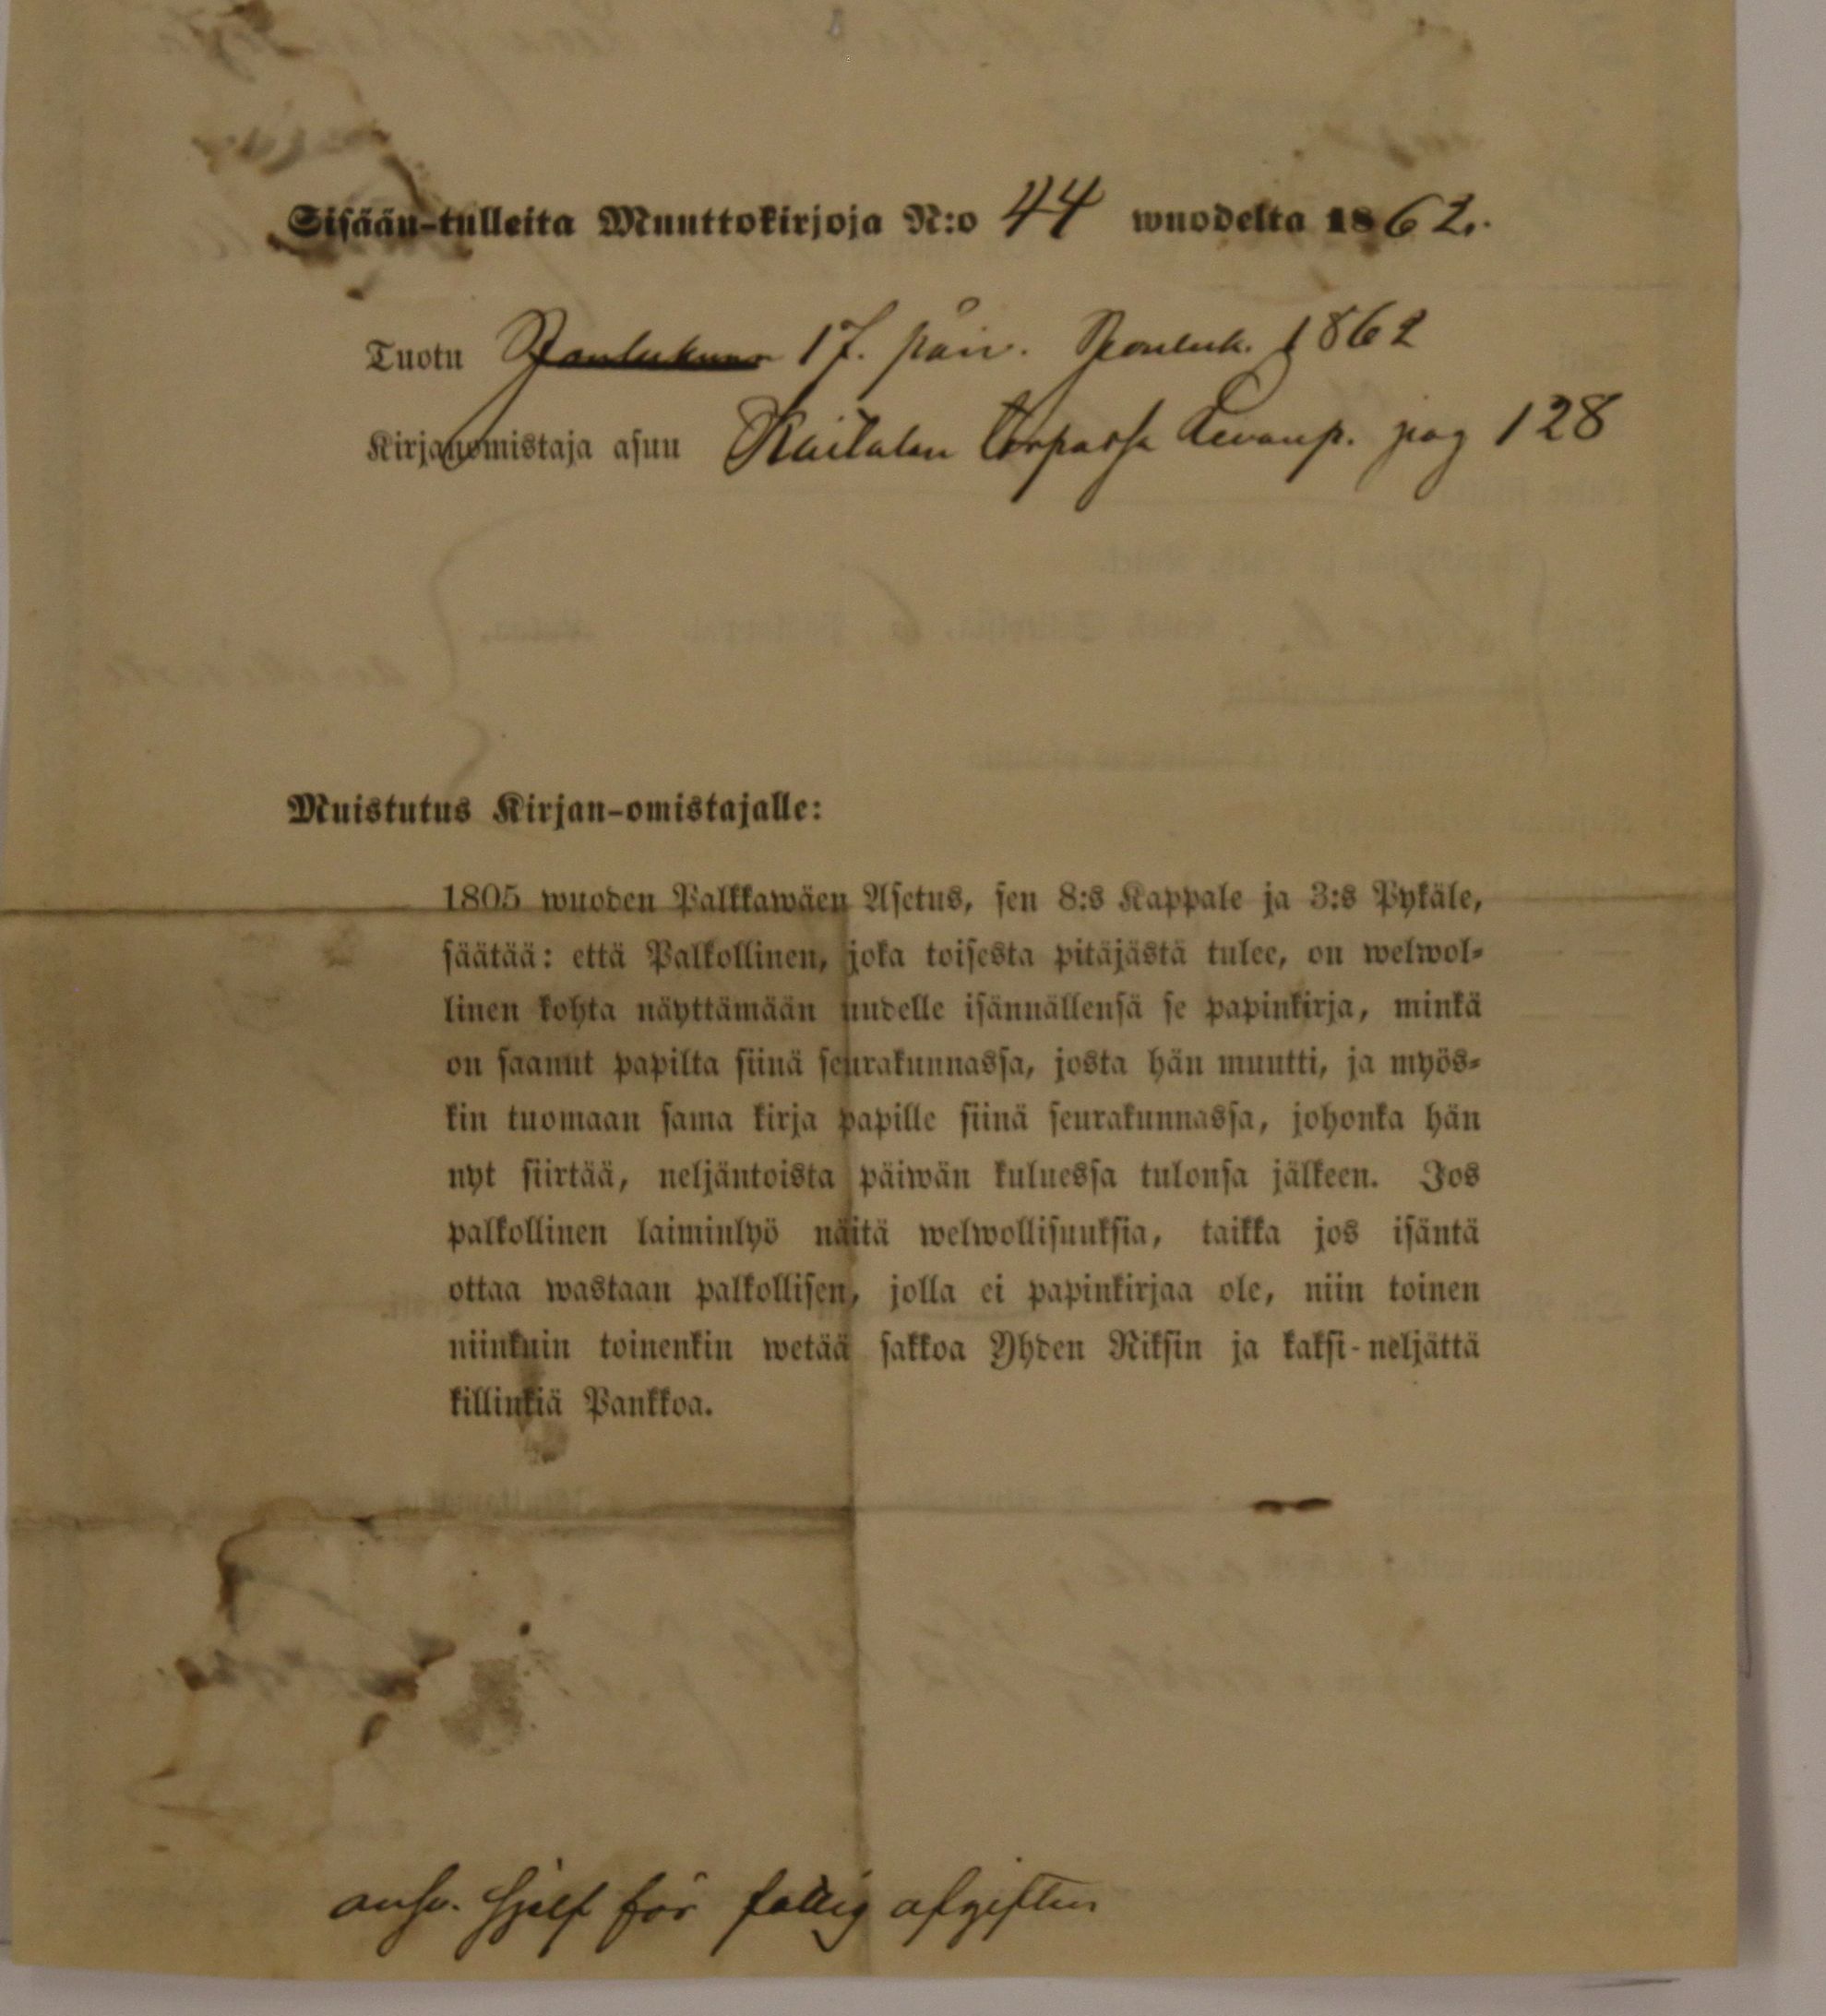 Sisään-tulleita Muuttokirjoja N:o 44 wuodelta 1862.
Tuotu Joulukuun 17. päiv. Jouluk. 1862
Kirjanomistaja asuu torpassa pag 128
Muistutus Kirjan-omistajalle:
1805 wuoden Palkkawäen Asetus, sen 8:s Kappale ja 3:s Pykäle,
säätää: että Palkollinen, joka toisesta pitäjästä tulee, on welwol-
linen kohta näyttämään uudelle isännällensä se papinkirja, minkä
on saanut papilta siinä seurakunnassa, josta hän muutti, ja myös-
kin tuomaan sama kirja papille siinä seurakunnassa, johonka hän
nyt siirtää, neljäntoista päiwän kuluessa tulonsa jälkeen. Jos
palkollinen laiminlyö näitä welwollisuuksia, taikka jos isäntä
ottaa wastaan palkollisen, jolla ei papinkirjaa ole, niin toinen
niinkuin toinenkin wetää sakkoa Yhden Riksin ja kaksi-neljättä
killinkiä Pankkoa.
ansv. sjelf för fattig afgiften